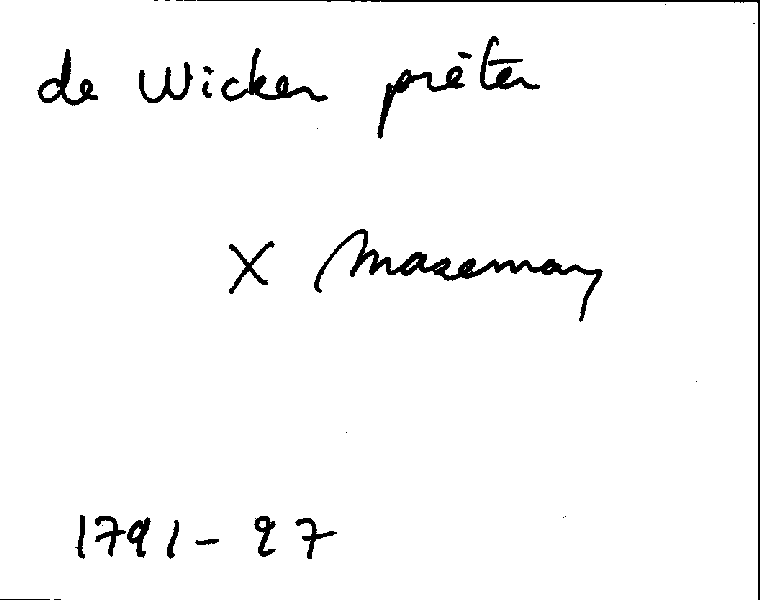 de Wicker prêter
X Mazeman
1791 - 27